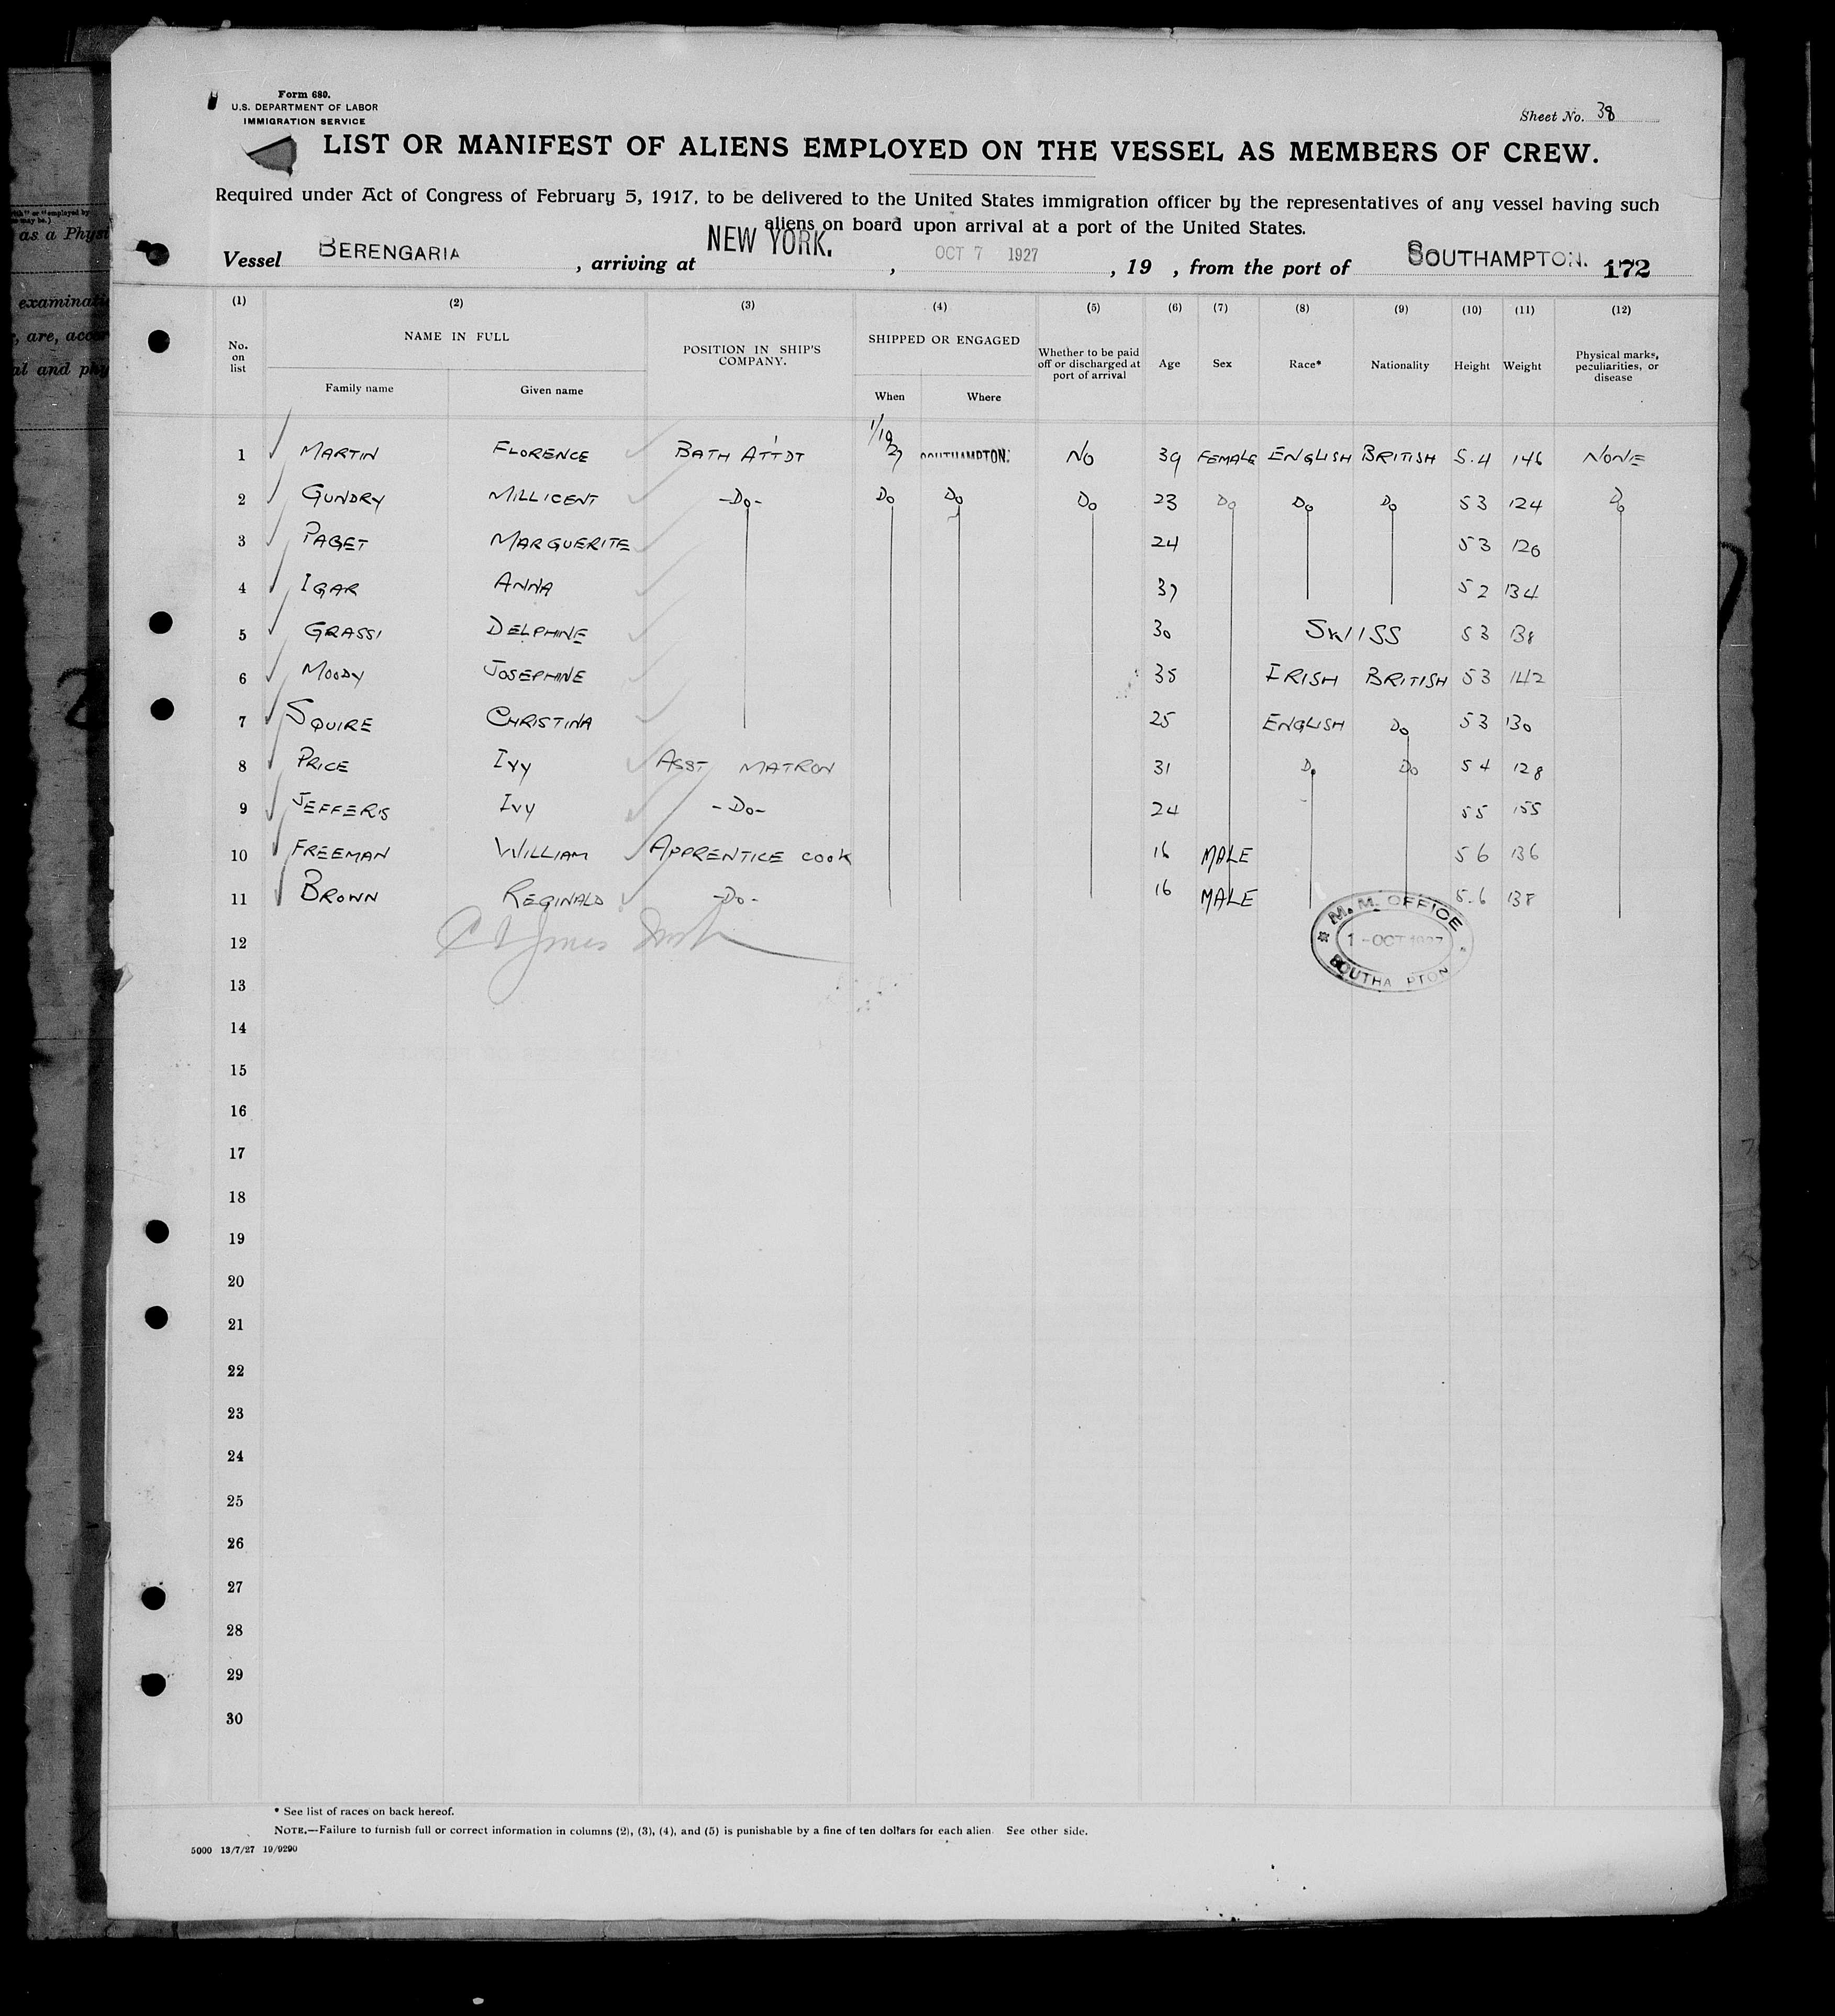 Form 680.
U.S. DEPARTMENT OF LABOR
IMMIGRATION SERVICE
Sheet No. 38
LIST OR MANIFEST OF ALIENS EMPLOYED ON THE VESSEL AS MEMBERS OF CREW.
Required under Act of Congress of February 5, 1917, to be delivered to the United States immigration officer by the representatives of any vessel having such
aliens on board upon arrival at a port of the United States.
Vessel BERENGARIA, arriving at NEW YORK., OCT 7 1927, 19 , from the port of SOUTHAMPTON. 172
(1) (2) (3) (4) (5) (6) (7) (8) (9) (10) (11) (12)
No. on list NAME IN FULL Family name Given name POSITION IN SHIP'S COMPANY. SHIPPED OR ENGAGED When Where Whether to be paid off or discharged at port of arrival Age Sex Race* Nationality Height Weight Physical marks, peculiarities, or disease
1 MARTIN FLORENCE BATH ATTDT 1/10 27 SOUTHAMPTON. NO 39 FEMALE ENGLISH BRITISH 5.4 146 NONE
2 GUNDRY MILLICENT -DO- DO DO DO 23 DO DO DO 53 124 DO
3 PAGET MARGUERITE 24 53 126
4 IGAR ANNA 37 52 134
5 GRASSI DELPHINE 30 SWISS 53 138
6 MOODY JOSEPHINE 35 IRISH BRITISH 53 142
7 SQUIRE CHRISTINA 25 ENGLISH DO 53 130
8 PRICE IVY ASST MATRON 31 DO DO 54 128
9 JEFFERIS IVY -DO- 24 55 155
10 FREEMAN WILLIAM APPRENTICE COOK 16 MALE 56 136
11 BROWN REGINALD -DO- 16 MALE 5.6 138
M.M. OFFICE
1-OCT 1927
SOUTHA PTON
12
13
14
15
16
17
18
19
20
21
22
23
24
25
26
27
28
29
30
* See list of races on back hereof.
NOTE.—Failure to furnish full or correct information in columns (2), (3), (4), and (5) is punishable by a fine of ten dollars for each alien. See other side.
5000 13/7/27 19/9290